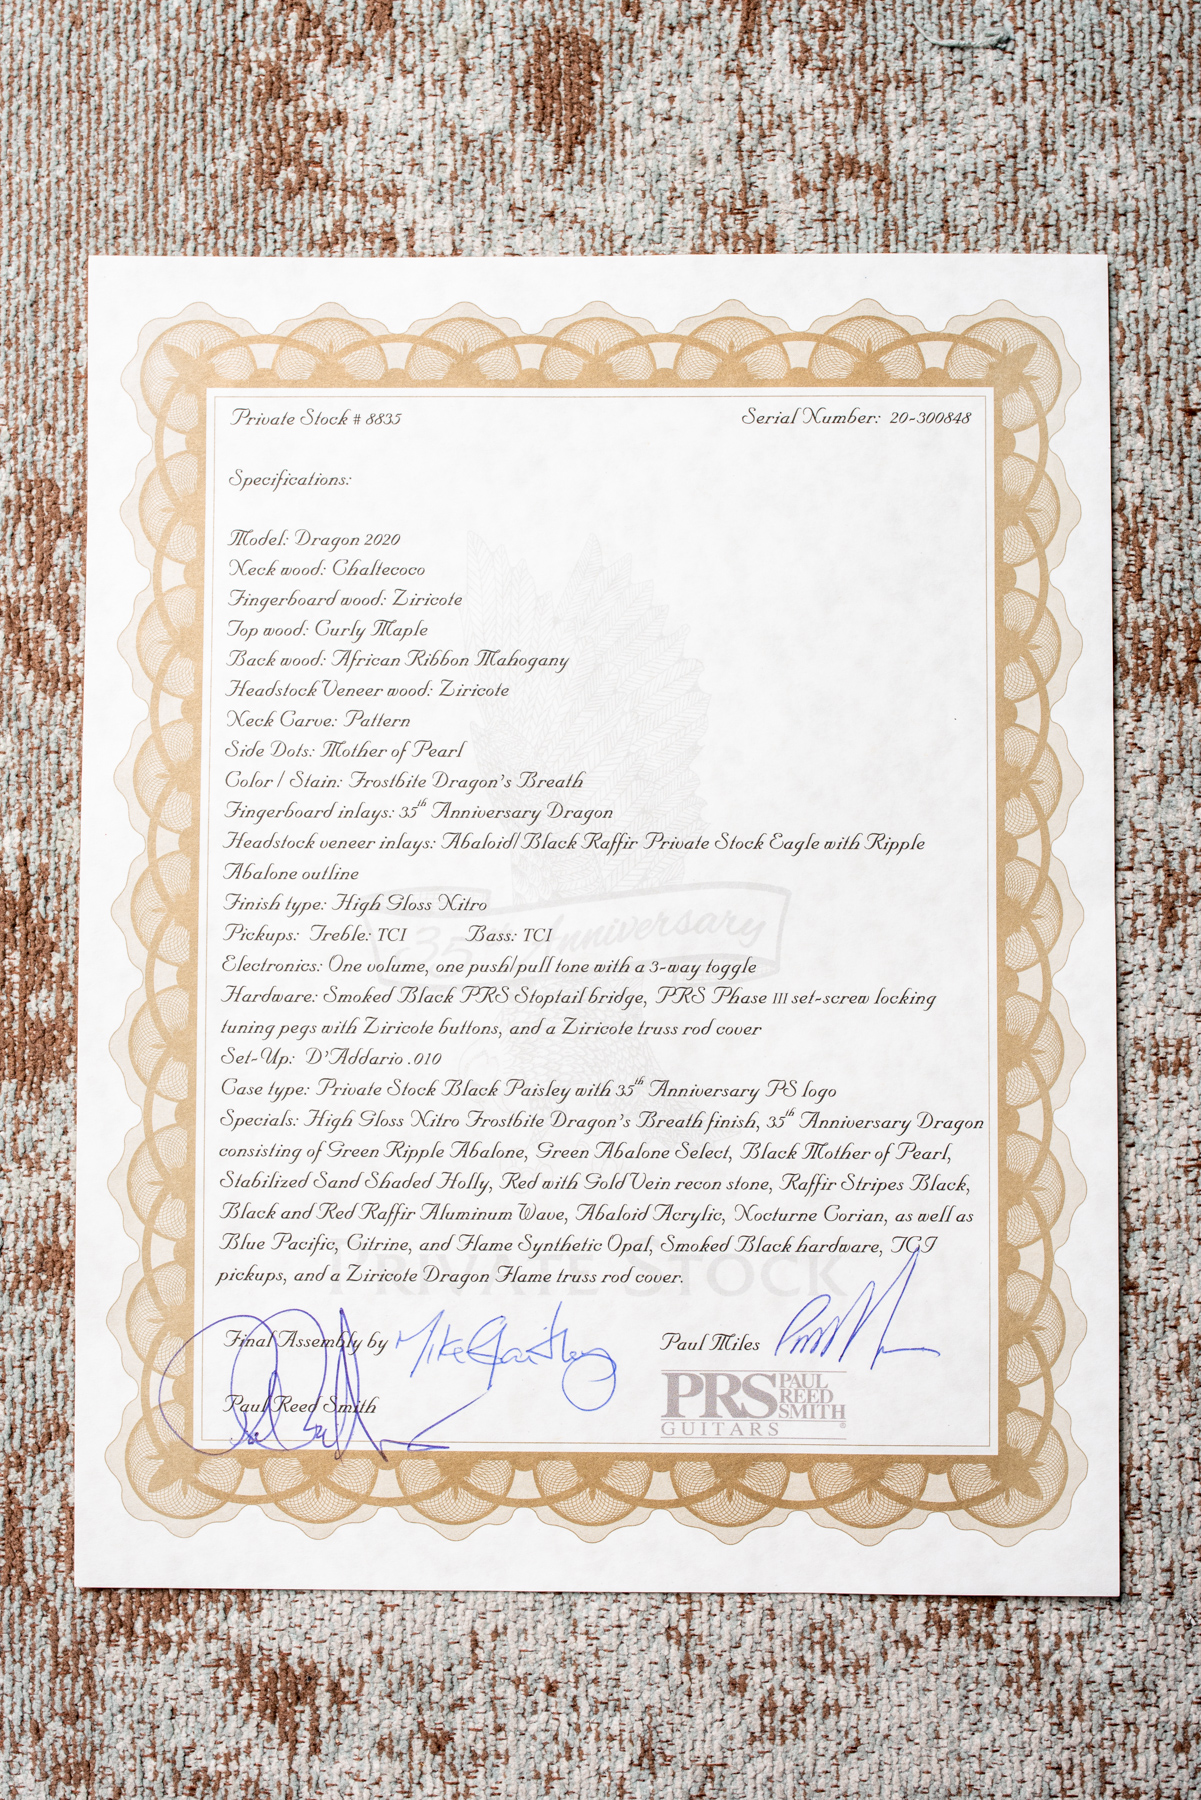 Private Stock # 8835 Serial Number: 20-300848
Specifications:
Model: Dragon 2020
Neck wood: Chaltecoco
Fingerboard wood: Ziricote
Top wood: Curly Maple
Back wood: African Ribbon Mahogany
Headstock Veneer wood: Ziricote
Neck Carve: Pattern
Side Dots: Mother of Pearl
Color / Stain: Frostbite Dragon's Breath
Fingerboard inlays: 35th Anniversary Dragon
Headstock veneer inlays: Abaloid/Black Raffir Private Stock Eagle with Ripple
Abalone outline
Finish type: High Gloss Nitro
Pickups: Treble: TCI Bass: TCI
35th Anniversary
Electronics: One volume, one push/pull tone with a 3-way toggle
Hardware: Smoked Black PRS Stoptail bridge, PRS Phase III set-screw locking
tuning pegs with Ziricote buttons, and a Ziricote truss rod cover
Set-Up: D'Addario .010
Case type: Private Stock Black Paisley with 35th Anniversary PS logo
Specials: High Gloss Nitro Frostbite Dragon's Breath finish, 35th Anniversary Dragon
consisting of Green Ripple Abalone, Green Abalone Select, Black Mother of Pearl,
Stabilized Sand Shaded Holly, Red with Gold Vein recon stone, Raffir Stripes Black,
Black and Red Raffir Aluminum Wave, Abaloid Acrylic, Nocturne Corian, as well as
Blue Pacific, Citrine, and Flame Synthetic Opal, Smoked Black hardware, TCI
pickups, and a Ziricote Dragon Flame truss rod cover.
PRIVATE STOCK
Final Assembly by Paul Miles
Paul Reed Smith
PRS PAUL REED SMITH
GUITARS